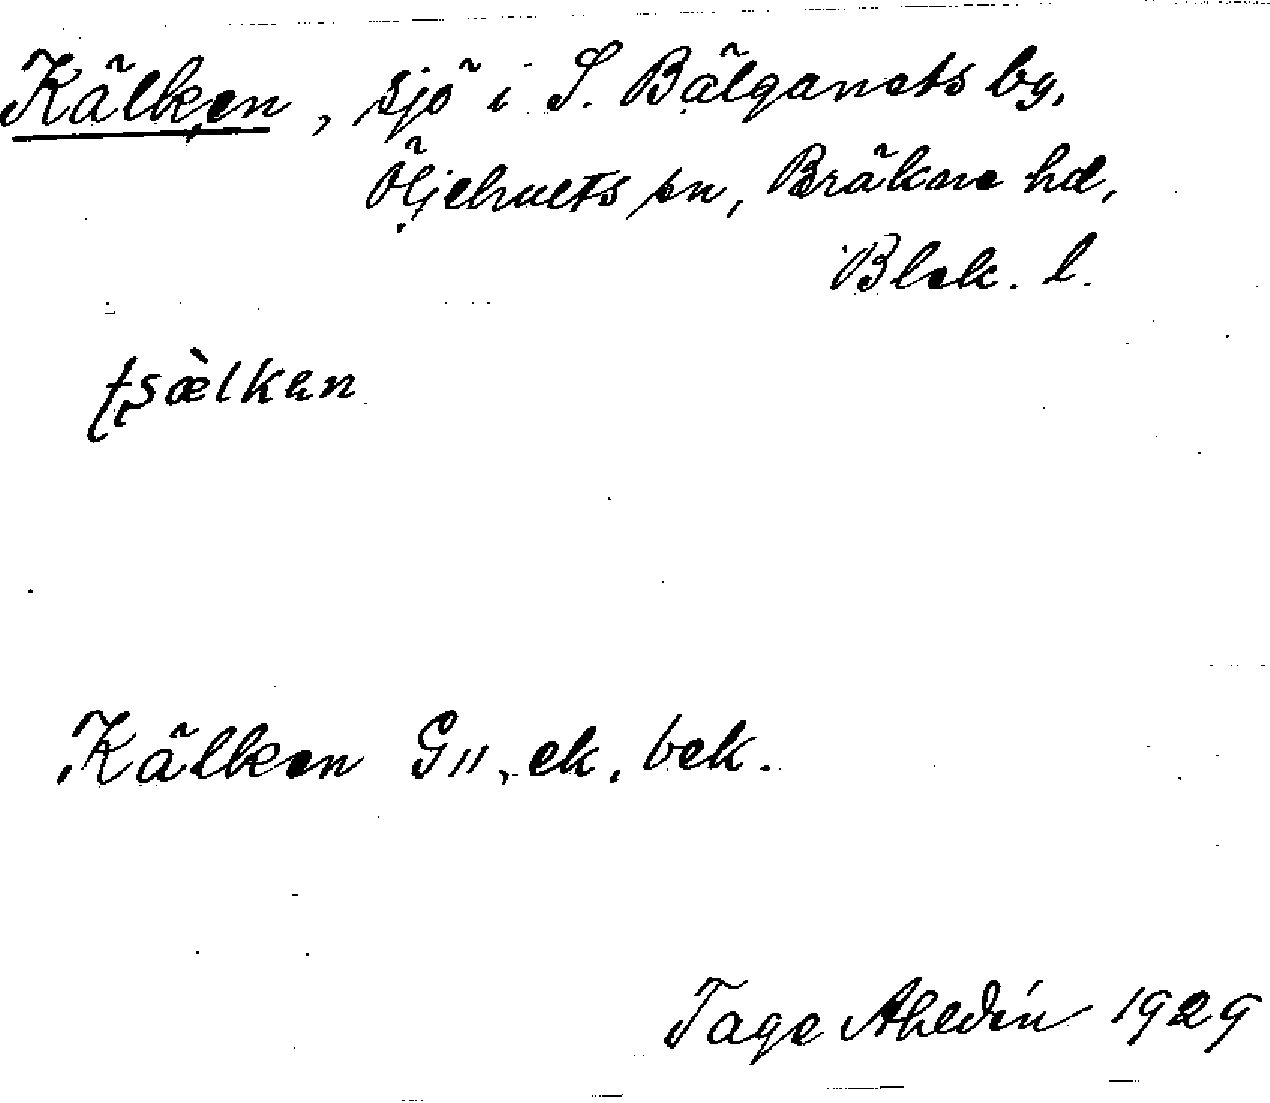 Kälken, sjö i S. Bälganets by,
Öljehults sn, Bräkne hd,
Blek. l.
tsæ̀lkan
Kälken G11, ek, bek.
Tage Ahldén 1929